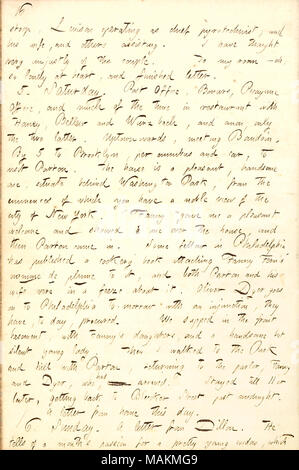 stoop, Levison operating as chief pyrotechnist, and
his wife, and others assisting. I have thought
very unjustly of the couple. To my room — oh,
so lonely at heart, and finished letter.
5. Saturday. Post Office, Bowery, Picayune
Office, and much of the time in restaurant with
Haney, Bellew and
the two latter. Uptownwards, meeting Banton.
By 5 to Brooklyn, per omnibus and car, to
visit Parton. The house is a pleasant, handsome
one, situate behind Washington Park, from the
eminences of which you have a noble view of the
city of New York. "Fanny" gave me a pleasant
welcome and showed me over the house, and
then Parton came in. Some fellow in Philadelphia
has published a cookery book attaching Fanny Fern's
nomme de plume to it, and both Parton and his
wife were in a freeze about it. Oliver Dyer goes
on to Philadelphia to-morrow with an injunction they
have, to day, procured. We supped in the front
basement, with Fanny's daughters and a handsome but
silent young lady. Then walked to the Park
and back with Parton, returning to the parlor, Fanny
and Dyer, who had arrived. Stayed till 11 or
later, getting back to Bleecker Street past midnight.
A letter from home this day.
6. Sunday. A letter from Dillon. He
tells of a month's passion for a pretty young widow, which
alamy
Image ID: MAKMG9
www.alamy.com